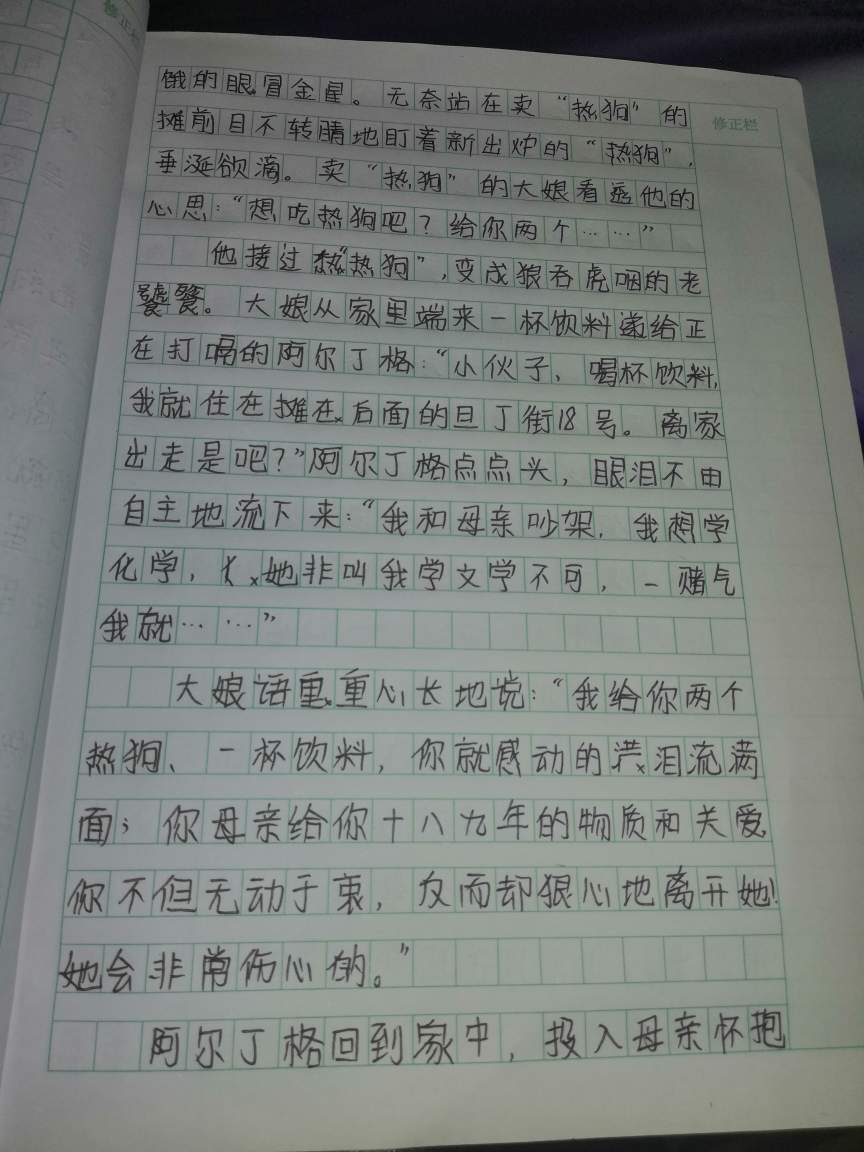 修正栏
饿的眼冒金星。无奈站在卖“热狗”的
修正栏
摊前目不转睛地盯着新出炉的“热狗”,
垂涎欲滴。卖“热狗”的大娘看透他的
心思:“想吃热狗吧?给你两个……”
他接过“热狗”,变成狼吞虎咽的老
饕餮。大娘从家里端来一杯饮料递给正
在打嗝的阿尔丁格:“小伙子、喝杯饮料,
我就住在摊在后面的旦丁街18号。离家
出走是吧?”阿尔丁格点点头,眼泪不由
自主地流下来:“我和母亲吵架,我想学
化学,她非叫我学文学不可,一赌气
我就……”
大娘语重心长地说:“我给你两个
热狗、一杯饮料,你就感动的泪流满
面;你母亲给你十八九年的物质和关爱,
你不但无动于衷,反而却狠心地离开她!
她会非常伤心的。”
阿尔丁格回到家中,投入母亲怀抱